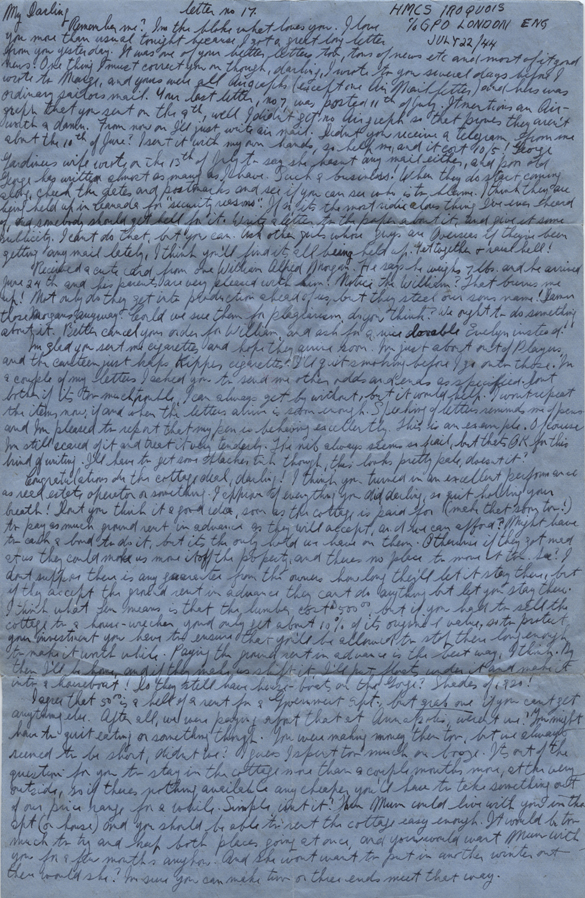 My Darling, letter no 17. HMCS IROQUOIS
Remember me? I'm the bloke what loves you. I love C/o GPO LONDON ENG
you more than usual tonight because I got a pretty long letter JULY 22/44
from you yesterday. It was one of your better letters too, tons of news etc and most of it good
news. One thing I must correct you on though, darling, I wrote to you several days before I
wrote to Marge, and yours were all airgraphs (except one Air Mail letter) and hers was
ordinary sailors mail. Your last letter, no 7, was posted 11th of July. It mentions an Air-
graph that you sent on the 9th, well I didn't get no Airgraph so that proves they aren't
worth a damn. From now on I'll just write air mail. Didn't you receive a telegram from me
about the 10th of June? I sent it with my own hands, so help me, and it cost 10/5! George
Jardines wife wrote on the 13th of July to say she hasn't any mail either, and poor old
George has written almost as many as I have. Such a business! When they do start coming
along, check the dates and postmarks and see if you can see who is to blame. I think they are
being held up in Canada for "security reasons". If so it's the most ridiculous thing I've ever heard
of and somebody should get hell for it. Write a letter to the paper about it, and give it some
publicity. I can't do that, but you can. Ask other girls whose guys are overseas if they've been
getting any mail lately, I think you'll find it all being held up. Get together & raise hell!
Received a cute card from one William Alfred Morgan. He says he weighs 7 lbs. and he arrived
June 24th and his parents are very pleased with him! Notice the William? That burns me
up! Not only do they get into production ahead of us, but they steal our sons name! Damn
those Morgans anyway! Could we sue them for plagiarism, do you think? We ought to do something
about it. Better cancel your order for William, and ask for a nice dorable Evelyn instead!
I'm glad you sent me cigarettes and hope they arrive soon. I'm just about out of Players
and the canteen just has Kippis cigarettes. I'll quit smoking before I go onto those. In
a couple of my letters I asked you to send me other odds and ends as specified, but
both if it's too much trouble, I can always get by without, but it would help. I won't repeat
the items now, if and when the letters arrive is soon enough. Speaking of letters reminds me of pens
and I'm pleased to report that my pen is behaving excellently. This is an example. Of course
I'm still scared of it and treat it very tenderly. The nib always seems so frail, but that's OK for this
kind of writing. I'll have to get some blacker ink though, this looks pretty pale, doesn't it?
Congratulations on the cottage deal, darling! I think you turned in an excellent performance
as real estate operator or something. I approve of everything you did darling, so quit holding your
breath! Don't you think it a good idea, soon as the cottage is paid for (make that soon too!)
to pay as much ground rent in advance as they will accept, and we can afford? Might have
to cash a bond to do it, but it's the only hold we have on them. Otherwise if they got mad
at us they could make us move it off the property, and there's no place to move it to. See? I
don't suppose there is any guarantee from the owners how long they'll let it stay there, but
if they accept the ground rent in advance they can't do anything but let you stay there.
I think what Jim means is that the lumber cost $500.00, but if you had to sell the
cottage to a house-wrecker you'd only get about 10% of its original value, so to protect
your investment you have to ensure that you'll be allowed to stop there long enough
to make it worth while. Paying the ground rent in advance is the best way, I think. By
then I'll be home, and if they make us shift it I'll put floats under it and make it
into a houseboat! Do they still have house-boats on the Gorge? Shades of 1920!
I agree that 50.00 is a hell of a rent for a Government apt, but grab one if you can't get
anything else. After all, we were paying about that at Annapolis, weren't we? You might
have to quit eating or something though. You were making money then too, but we always
seemed to be short, didn't we? I guess I spent too much on booze. It's out of the
question for you to stay in the cottage more than a couple months more, at the very
outside, so if there's nothing available any cheaper you'd have to take something out
of our price range for a while. Simple isn't it! Then Mum could live with you in the
apt (or house) and you should be able to rent the cottage easy enough. It would be too
much to try and keep both places going at once, and you would want Mum with
you for a few months anyhow. And she won't want to put in another winter out
there would she? I'm sure you can make two or three ends meet that way.